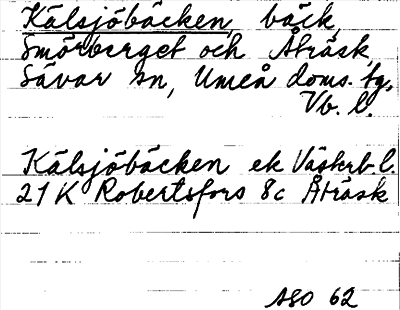 Kälsjöbäcken, bäck,
Smörberget och Åträsk,
Sävar sn, Umeå doms. tg,
Vb. l.
Kälsjöbäcken ek Västerb. l.
21 K Robertsfors 8c Åträsk
ASO 62